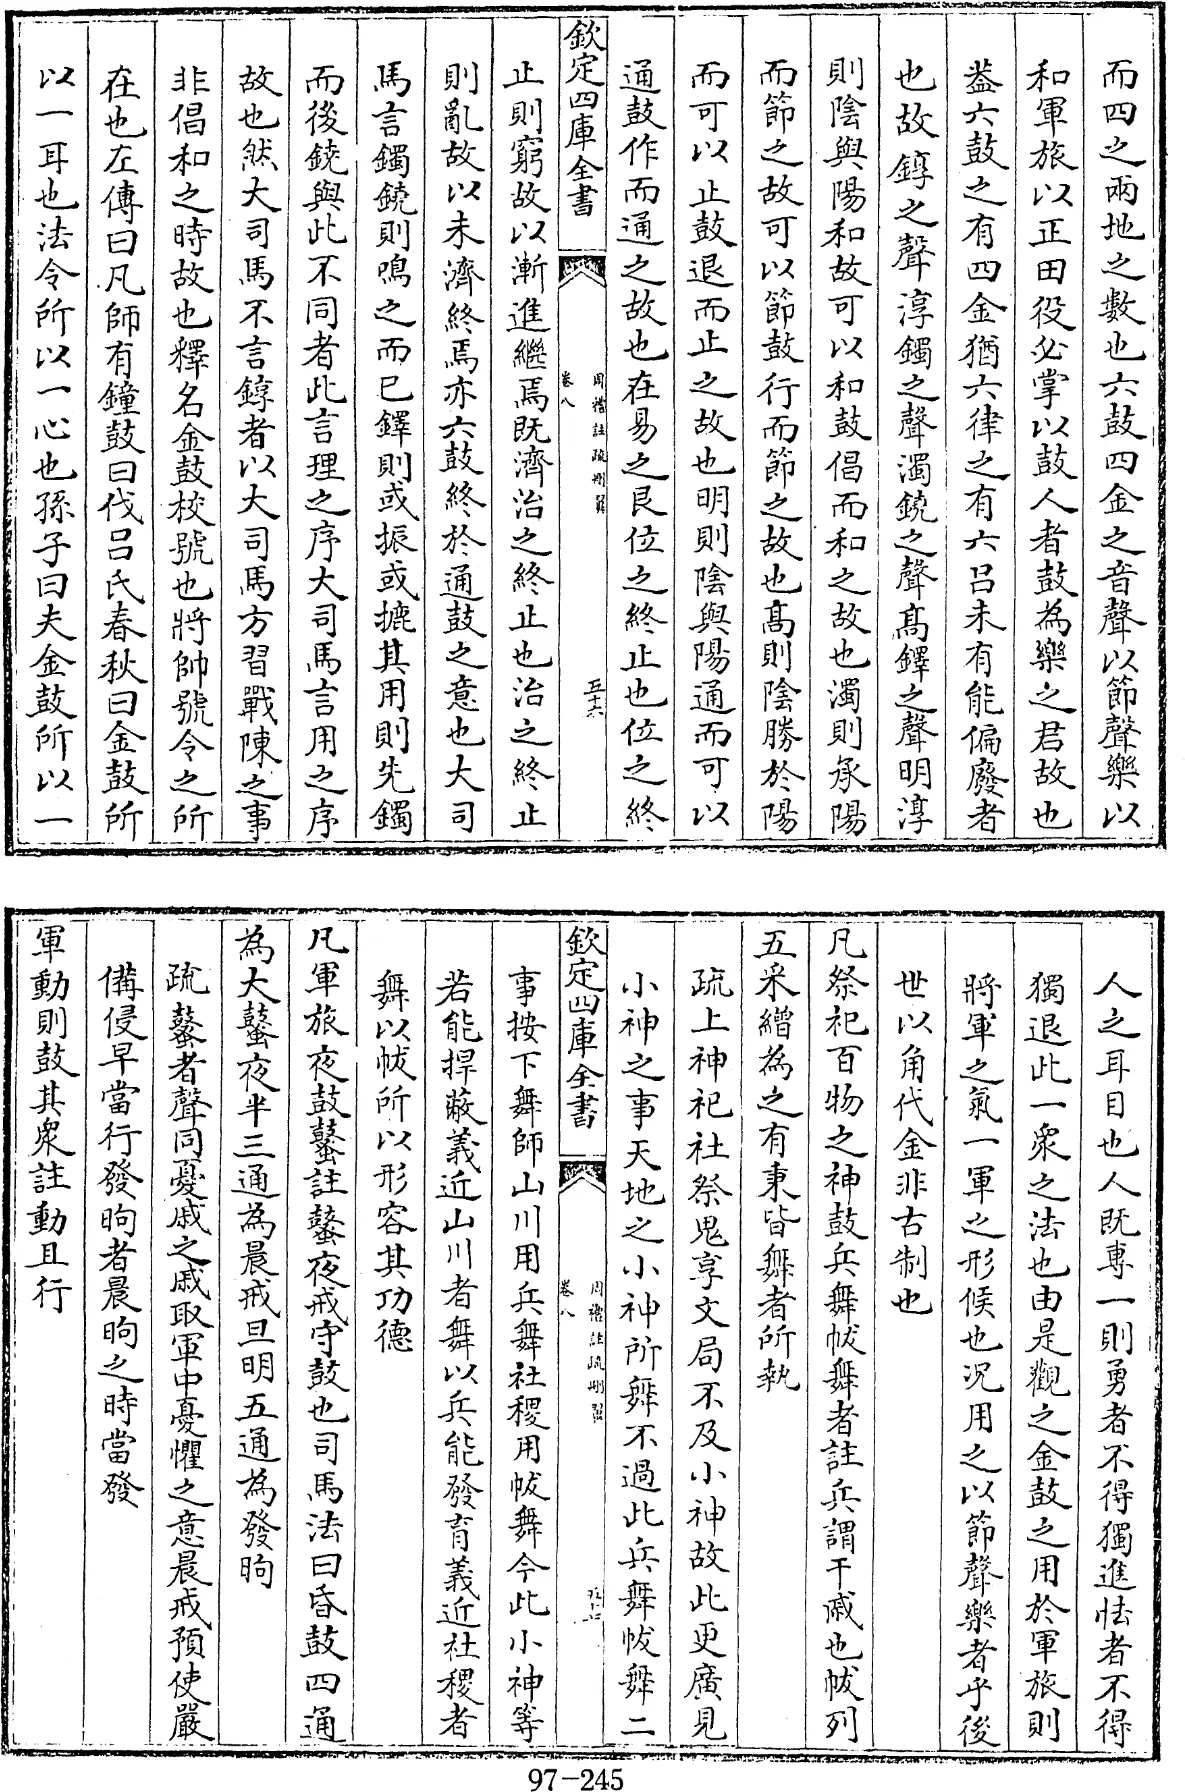 而四之兩地之數也六鼓四金之音聲以節聲樂以
和軍旅以正田役必掌以鼓人者鼓為樂之君故也
葢六鼓之有四金猶六律之有六呂未有能偏廢者
也故錞之聲淳鐲之聲濁鐃之聲髙鐸之聲明淳
則陰與陽和故可以和鼓倡而和之故也濁則承陽
而節之故可以節鼓行而節之故也髙則陰勝於陽
而可以止鼓退而止之故也明則陰與陽通而可以
通鼓作而通之故也在易之艮位之終止也位之終
欽定四庫全書
周禮註疏刪翼
卷八
五十六
止則窮故以漸進繼焉既濟治之終止也治之終止
則亂故以未濟終焉亦六鼓終於通鼓之意也大司
馬言鐲鐃則鳴之而已鐸則或振或摝其用則先鐲
而後鐃與此不同者此言理之序大司馬言用之序
故也然大司馬不言錞者以大司馬方習戰陳之事
非倡和之時故也釋名金鼓校號也將帥號令之所
在也左傳曰凡師有鐘鼓曰伐呂氏春秋曰金鼓所
以一耳也法令所以一心也孫子曰夫金鼓所以一
人之耳目也人既專一則勇者不得獨進怯者不得
獨退此一衆之法也由是觀之金鼓之用於軍旅則
將軍之氣一軍之形候也況用之以節聲樂者乎後
世以角代金非古制也
凡祭祀百物之神鼓兵舞帗舞者註兵謂干戚也帗列
五采繒為之有秉皆舞者所執
疏上神祀社祭鬼享文局不及小神故此更廣見
小神之事天地之小神所舞不過此兵舞帗舞二
欽定四庫全書
周禮註疏刪翼
卷八
五十七
事按下舞師山川用兵舞社稷用帗舞今此小神等
若能捍蔽義近山川者舞以兵能發育義近社稷者
舞以帗所以形容其功德
凡軍旅夜鼓鼜註鼜夜戒守鼓也司馬法曰昏鼓四通
為大鼜夜半三通為晨戒旦明五通為發昫
疏鼜者聲同憂戚之戚取軍中憂懼之意晨戒預使嚴
備侵早當行發昫者晨昫之時當發
軍動則鼓其衆註動且行
97-245